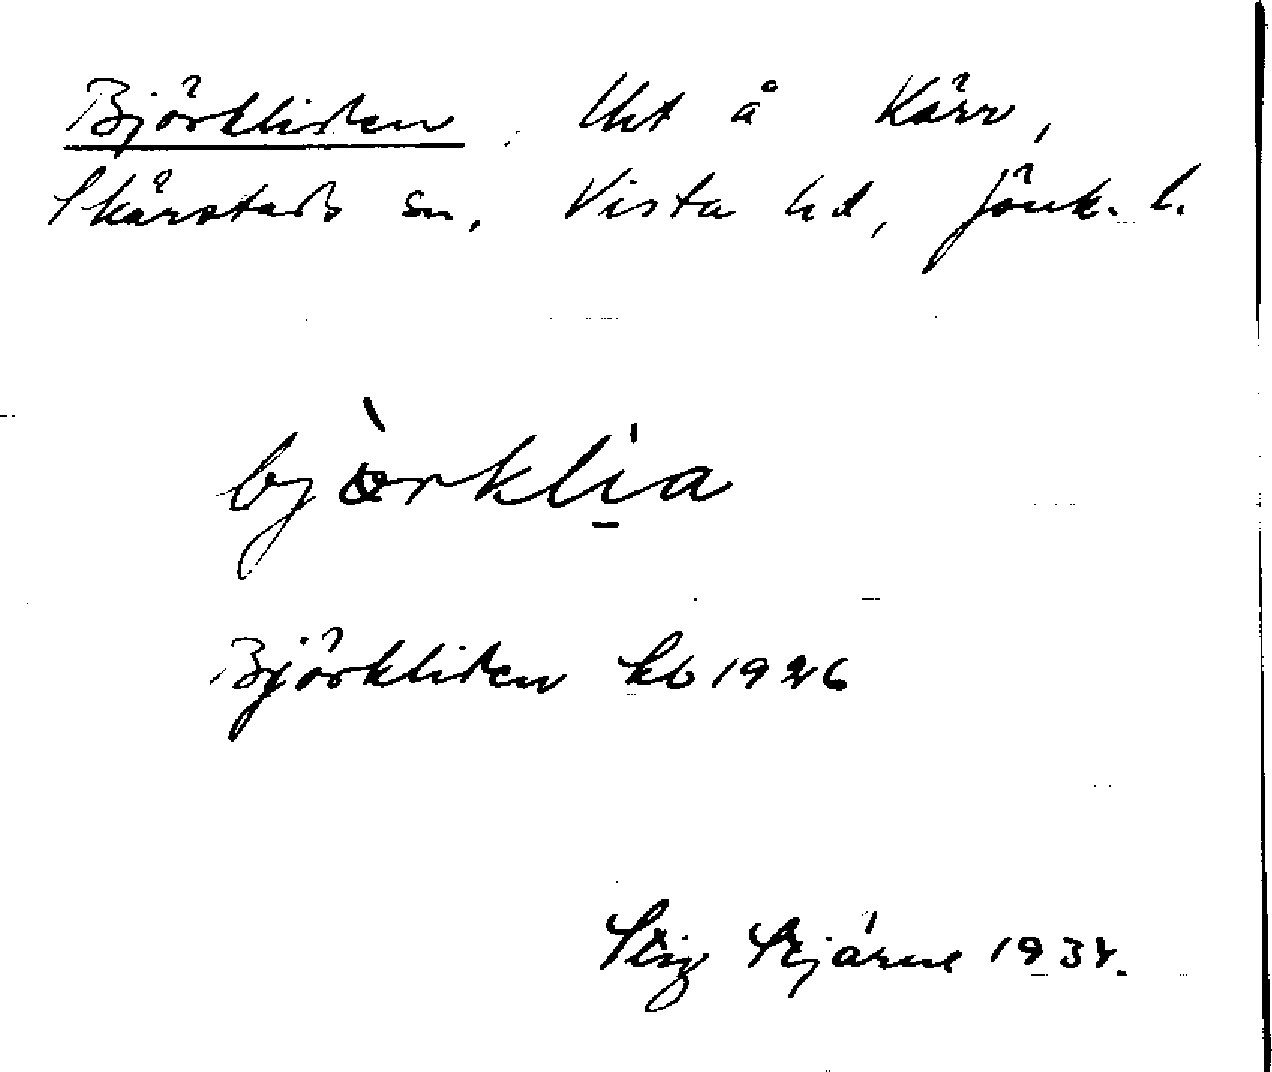 Björkliden, Uht å Kärr,
Skärstads sn, Vista hd, Jönk. l.
bjö̀rkli̱a
Björkliden kb 1926
Stig Stjärne